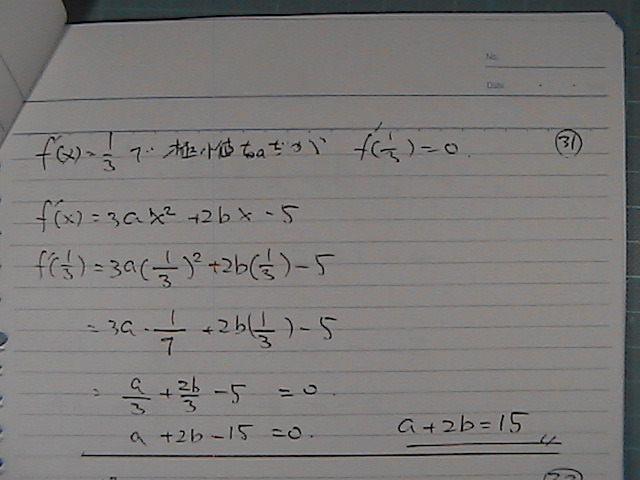 No.
Date
f'(x) = 1/3 で 極小値 f'(1/3) = 0. ㉛
f'(x) = 3ax² + 2bx - 5
f'(1/3) = 3a(1/3)² + 2b(1/3) - 5
= 3a · 1/7 + 2b(1/3) - 5
= a/3 + 2b/3 - 5 = 0.
a + 2b - 15 = 0. a + 2b = 15